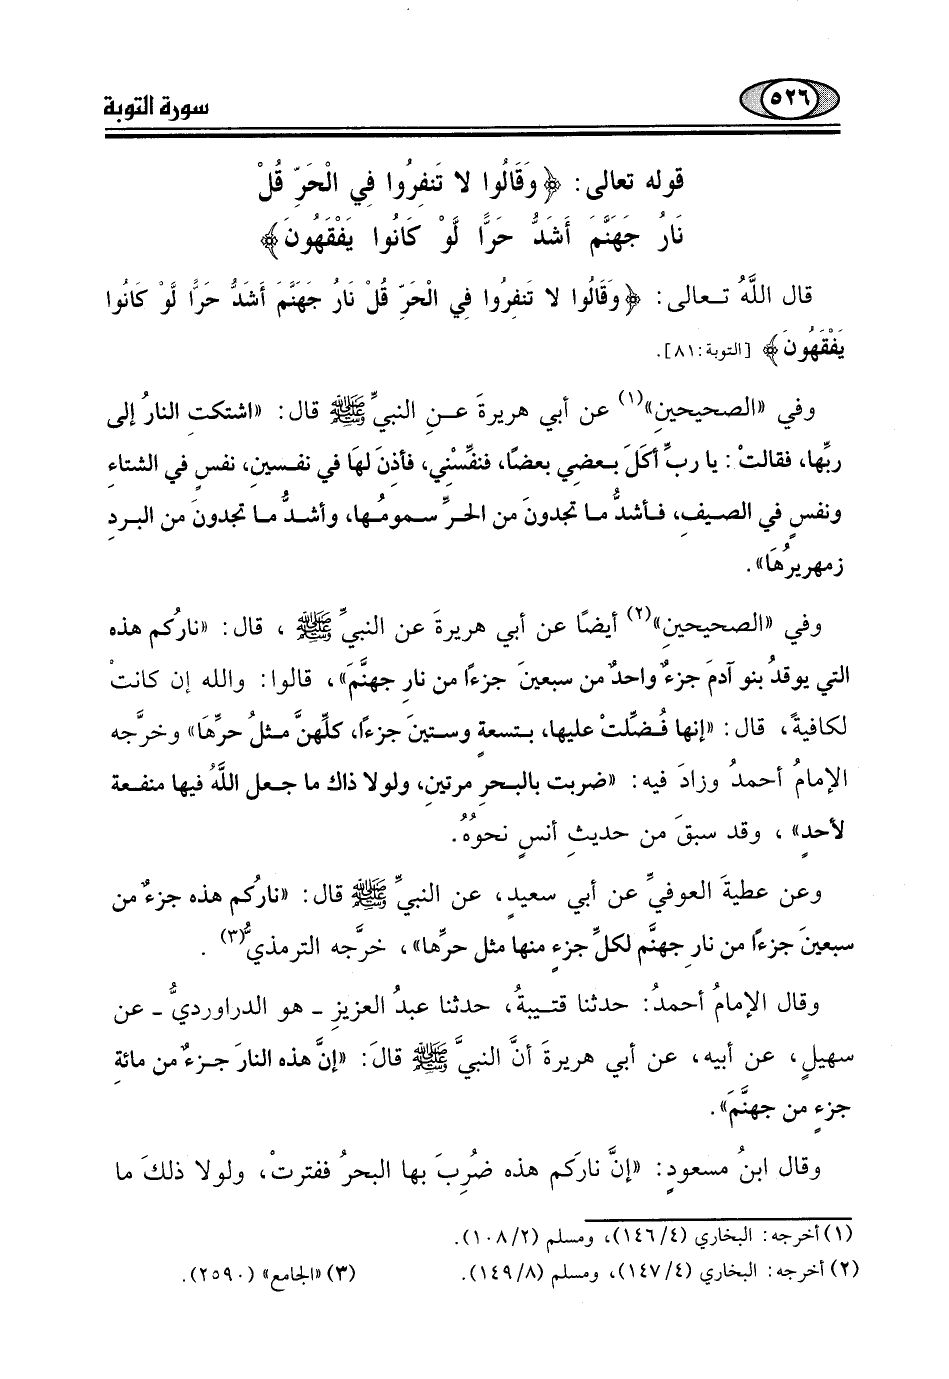 ٥٢٦
سورة التوبة
قوله تعالى: ﴿وَقَالُوا لا تَنفِرُوا فِي الْحَرِّ قُلْ
نَارُ جَهَنَّمَ أَشَدُّ حَرًّا لَّوْ كَانُوا يَفْقَهُونَ﴾
قال اللَّهُ تـعالى: ﴿وَقَالُوا لا تَنفِرُوا فِي الْحَرِّ قُلْ نَارُ جَهَنَّمَ أَشَدُّ حَرًّا لَّوْ كَانُوا
يَفْقَهُونَ﴾ [التوبة:٨١].
وفي «الصحيحينِ»(١) عن أبي هريرةَ عـنِ النبيِّ ﷺ قال: «اشتكت النارُ إلى
ربِّها، فقالتْ: يا ربِّ أكلَ بـعضي بعضًا، فنفِّسْني، فأذنَ لهَا في نفـسينِ، نفسٍ في الشتاءِ
ونفسٍ في الصيفِ، فـأشدُّ مـا تجدونَ من الحـرِّ سـمومُـها، وأشـدُّ مـا تجدونَ من البـردِ
زمهريرُهَا».
وفي «الصحيحينِ»(٢) أيضًا عن أبي هريرةَ عن النبيِّ ﷺ ، قال: «ناركم هذه
التي يوقدُ بنو آدمَ جزءٌ واحدٌ من سبعينَ جزءًا من نارِ جهنَّمَ»، قالوا: والله إن كانتْ
لكافيةً، قال: «إنها فُضِّلتْ عليها، بـتسعةٍ وسـتينَ جزءًا، كلِّهنَّ مـثلُ حرِّهَا» وخرَّجه
الإمامُ أحمدُ وزادَ فيه: «ضربت بالبـحرِ مرتينِ، ولولا ذاك ما جـعل اللَّهُ فيها منفـعة
لأحدٍ» ، وقد سبقَ من حديثِ أنسٍ نحوُهُ.
وعن عطيةَ العوفيِّ عن أبي سعيدٍ، عن النبيِّ ﷺ قال: «ناركُم هذه جزءٌ من
سبعينَ جزءًا من نارِ جهنَّم لكلِّ جزءٍ منها مثل حرِّها»، خرَّجه الترمذيُّ(٣) .
وقال الإمامُ أحمدُ: حدثنا قتـيبةُ، حدثنا عبدُ العزيزِ ـ هو الدراورديُّ ـ عن
سهيلٍ، عن أبيه، عن أبي هريرةَ أنَّ النبيَّ ﷺ قالَ: «إنَّ هذه النارَ جـزءٌ من مائةِ
جزءٍ من جهنَّمَ».
وقال ابنُ مسعودٍ: «إنَّ ناركم هذه ضُرِبَ بها البحرُ ففترتْ، ولولا ذلكَ ما
(١) أخرجه: البخاري (٤/١٤٦)، ومسلم (٢/١٠٨).
(٢) أخرجه: البخاري (٤/١٤٧)، ومسلم (٨/١٤٩). (٣) «الجامع» (٢٥٩٠).